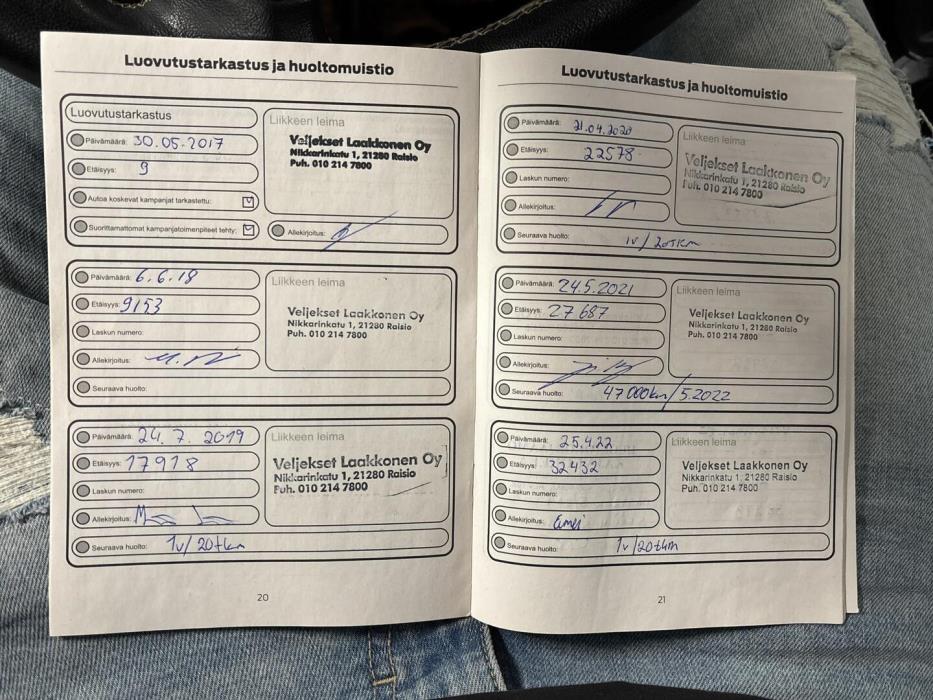 Luovutustarkastus ja huoltomuistio
Luovutustarkastus
Päivämäärä: 30.05.2017
Etäisyys: 9
Autoa koskevat kampanjat tarkastettu:
Suorittamattomat kampanjatoimenpiteet tehty:
Liikkeen leima
Veljekset Laakkonen Oy
Nikkarinkatu 1, 21280 Raisio
Puh. 010 214 7800
Allekirjoitus:
Päivämäärä: 6.6.18
Etäisyys: 9153
Laskun numero:
Allekirjoitus:
Seuraava huolto:
Liikkeen leima
Veljekset Laakkonen Oy
Nikkarinkatu 1, 21280 Raisio
Puh. 010 214 7800
Päivämäärä: 24.7.2019
Etäisyys: 17918
Laskun numero:
Allekirjoitus:
Seuraava huolto: 1v/20tkm
Liikkeen leima
Veljekset Laakkonen Oy
Nikkarinkatu 1, 21280 Raisio
Puh. 010 214 7800
20
Luovutustarkastus ja huoltomuistio
Päivämäärä: 21.04.2020
Etäisyys: 22578
Laskun numero:
Allekirjoitus:
Seuraava huolto: 1v/20tkm
Liikkeen leima
Veljekset Laakkonen Oy
Nikkarinkatu 1, 21280 Raisio
Puh. 010 214 7800
Päivämäärä: 24.5.2021
Etäisyys: 27687
Laskun numero:
Allekirjoitus:
Seuraava huolto: 47000km/5.2022
Liikkeen leima
Veljekset Laakkonen Oy
Nikkarinkatu 1, 21280 Raisio
Puh. 010 214 7800
Päivämäärä: 25.4.22
Etäisyys: 32432
Laskun numero:
Allekirjoitus:
Seuraava huolto: 1v/20tkm
Liikkeen leima
Veljekset Laakkonen Oy
Nikkarinkatu 1, 21280 Raisio
Puh. 010 214 7800
21